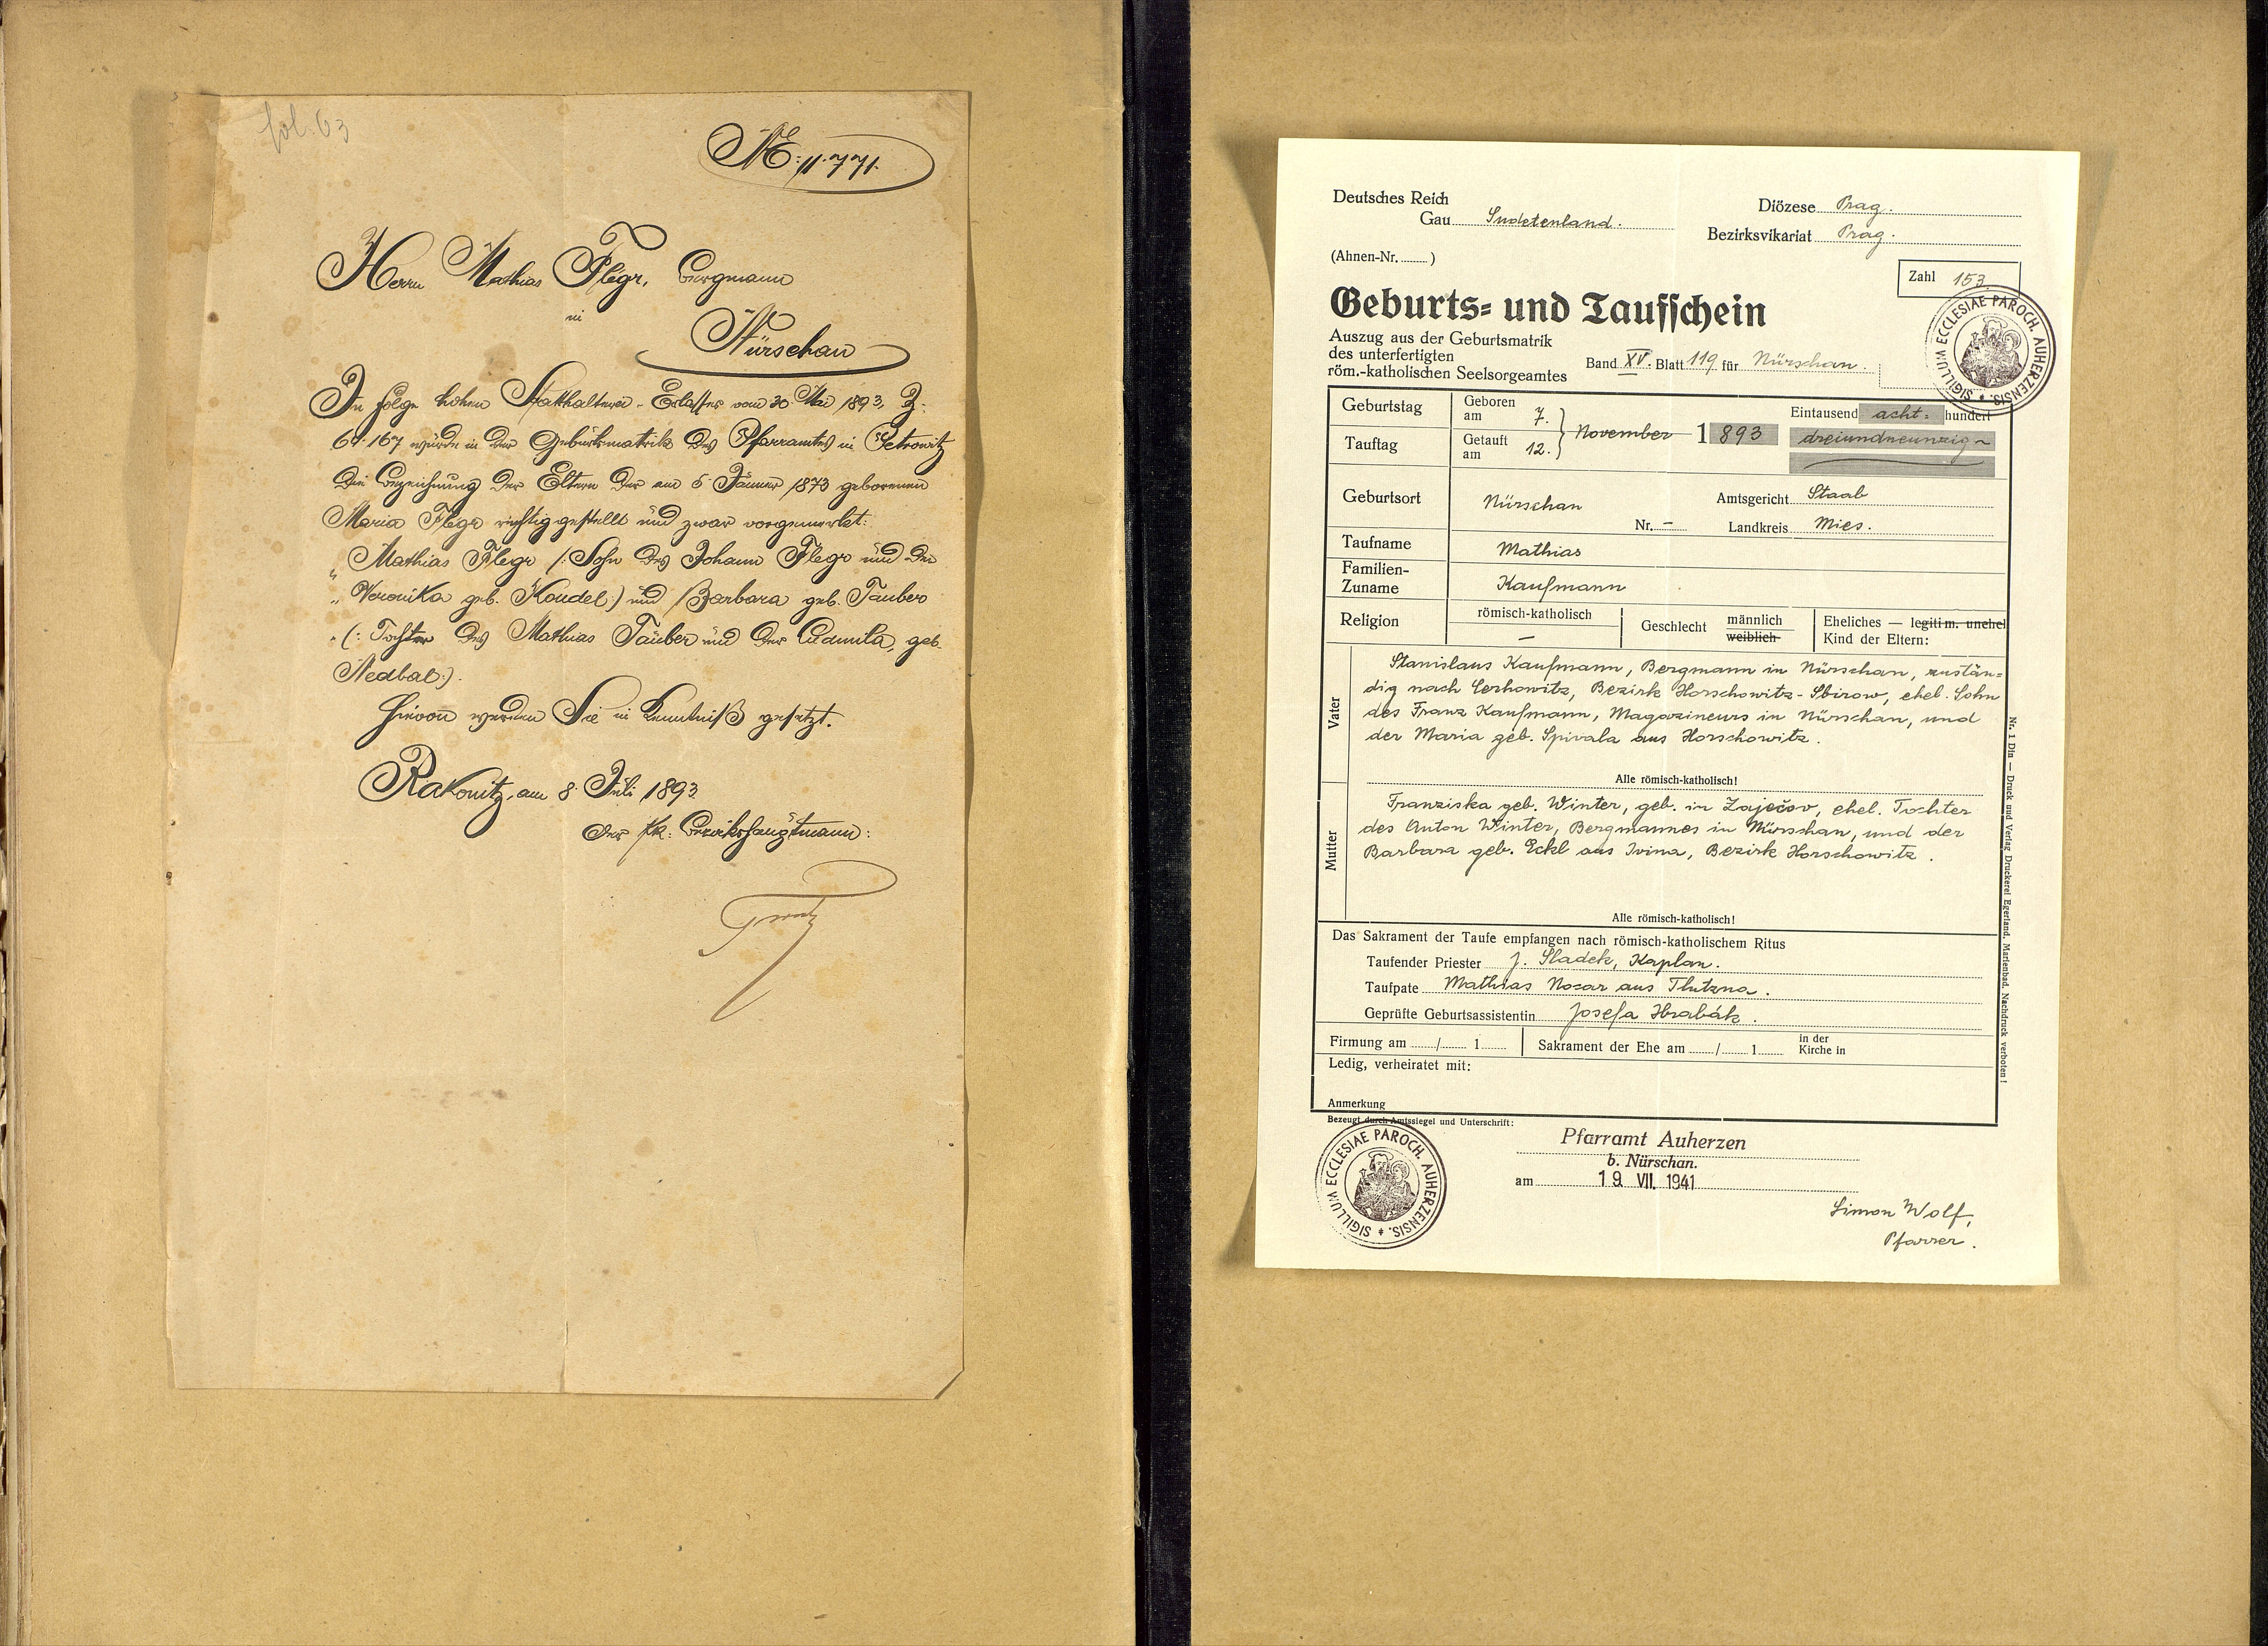 fol. 63
N: 11.771.
Herrn Mathias Flegr, Bergmann
in
Nürschan
In Folge hohen Statthalterei-Erlasses vom 30 Mai 1893, Z:
64.167 wurde in der Geburtsmatrik des Pfarramtes in Petrowitz
die Bezeichnung der Eltern der am 5 Jänner 1873 geborenen
Maria Flegr richtig gestellt und zwar vorgemerkt:
„ Mathias Flegr (: Sohn des Johann Flegr und der
„ Veronika geb. Koudel:) und Barbara geb. Tauber
„ (: Tochter des Mathias Tauber und der Ludmila, geb.
Nedbal:).
Hievon werden Sie in Kenntniß gesetzt.
Rakonitz, am 8. Juli 1893.
Der kk: Bezirkshauptmann:
Deutsches Reich
Gau Sudetenland.
Diözese Prag.
Bezirksvikariat Prag.
(Ahnen-Nr. )
Zahl 153.
Geburts- und Taufschein
SIGILLUM ECCLESIAE PAROCH. AUHERZENSIS.
Auszug aus der Geburtsmatrik
des unterfertigten
röm.-katholischen Seelsorgeamtes Band XV. Blatt 119 für Nürschan.
Geburtstag Geboren am 7. November 1893 Eintausend acht- hundert
Tauftag Getauft am 12. dreiundneunzig
Geburtsort Nürschan Nr. – Amtsgericht Staab
Landkreis Mies.
Taufname Mathias
Familien-
Zuname Kaufmann
Religion römisch-katholisch – Geschlecht männlich weiblich Eheliches — legitim. unehel
Kind der Eltern:
Vater
Stanislaus Kaufmann, Bergmann in Nürschan, zustän-
dig nach Cerhowitz, Bezirk Horschowitz-Sbirow, ehel. Sohn
des Franz Kaufmann, Magazineurs in Nürschan, und
der Maria geb. Spivala aus Horschowitz.
Alle römisch-katholisch!
Mutter
Franziska geb. Winter, geb. in Zaječov, ehel. Tochter
des Anton Winter, Bergmannes in Nürschan, und der
Barbara geb. Eckl aus Ivina, Bezirk Horschowitz.
Alle römisch-katholisch!
Das Sakrament der Taufe empfangen nach römisch-katholischem Ritus
Taufender Priester J. Sladek, Kaplan.
Taufpate Mathias Nocar aus Tlutzna.
Geprüfte Geburtsassistentin Josefa Hrabák.
Firmung am / 1 Sakrament der Ehe am / 1 in der
Kirche in
Ledig, verheiratet mit:
Anmerkung
Bezeugt durch Amtssiegel und Unterschrift:
SIGILLUM ECCLESIAE PAROCH. AUHERZENSIS.
Pfarramt Auherzen
b. Nürschan.
am 19. VII. 1941
Simon Wolf,
Pfarrer.
Nr. 1 Din — Druck und Verlag Druckerei Egerland, Marienbad. Nachdruck verboten!